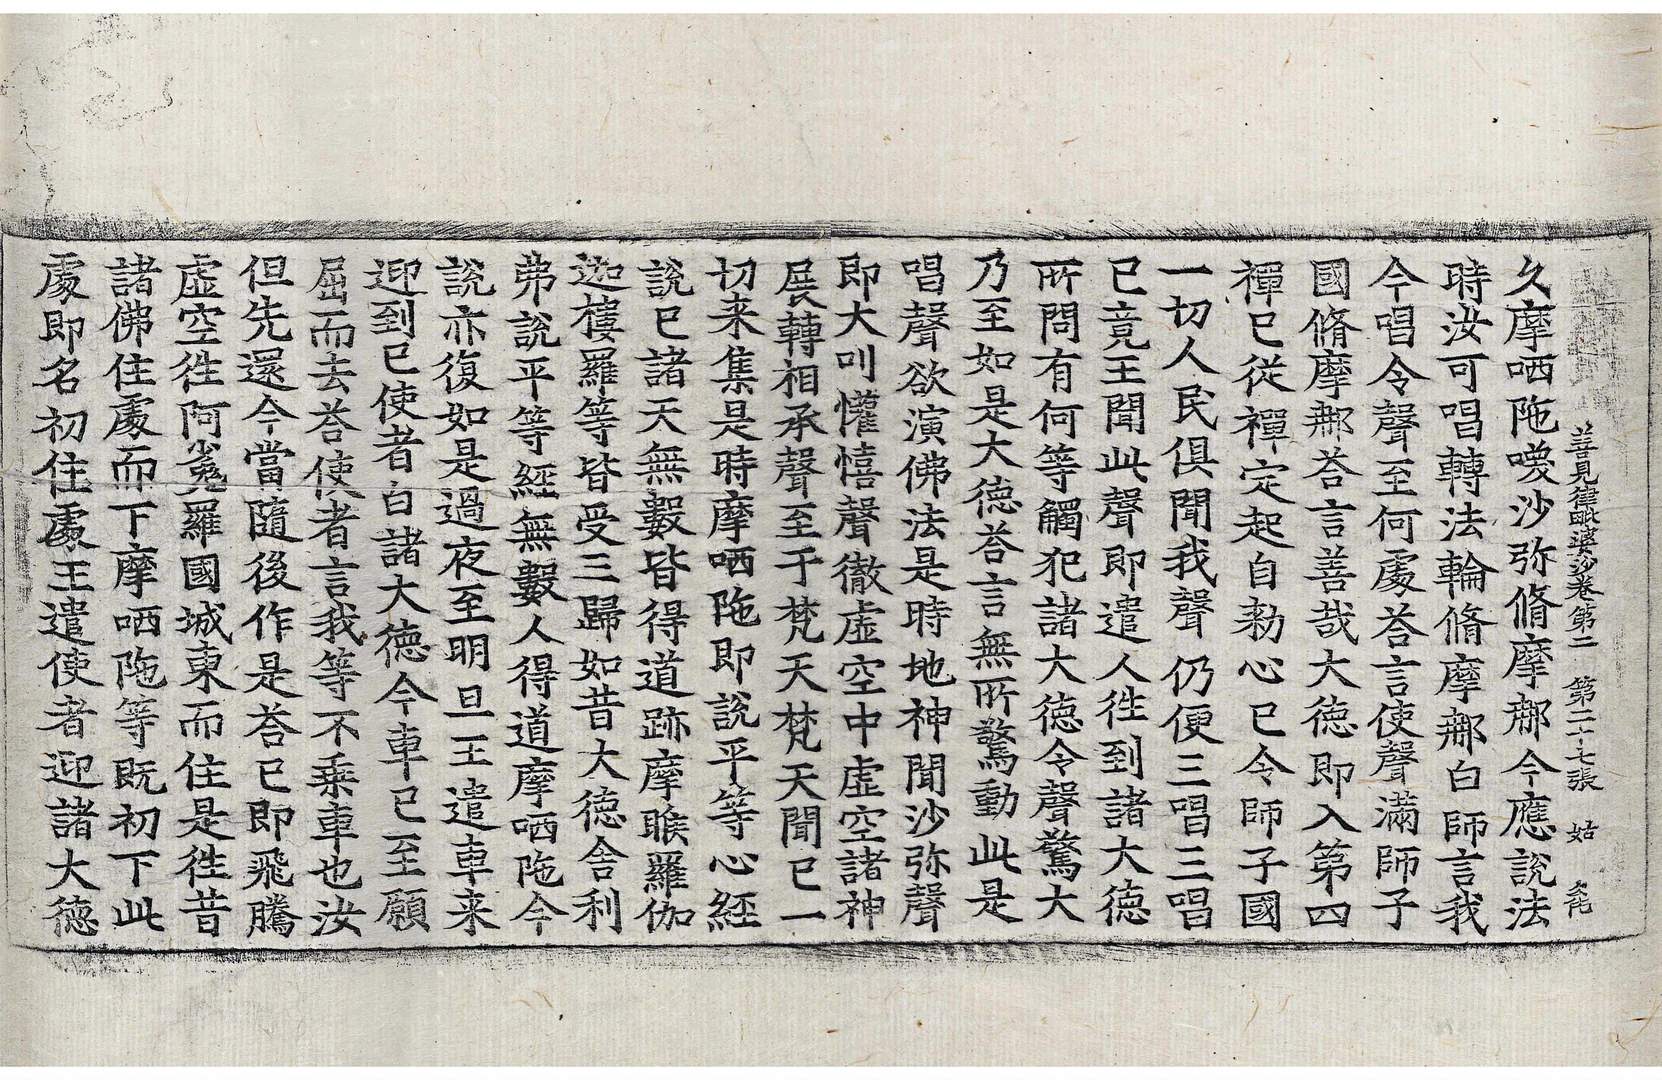 善見律毗婆沙卷第二 第二十七張 姑
久摩哂陁喚沙弥脩摩㝹今應說法
時汝可唱轉法輪脩摩㝹白師言我
今唱令聲至何處荅言使聲滿師子
國脩摩㝹荅言善哉大德即入第四
禪已從禪定起自勑心已令師子國
一切人民俱聞我聲仍便三唱三唱
已竟王聞此聲即遣人往到諸大德
所問有何等觸犯諸大德令聲驚大
乃至如是大德荅言無所驚動此是
唱聲欲演佛法是時地神聞沙弥聲
即大叫懽憘聲徹虛空中虛空諸神
展轉相承聲至于梵天梵天聞已一
切来集是時摩哂陁即說平等心經
說已諸天無數皆得道跡摩睺羅伽
迦樓羅等皆受三歸如昔大德舍利
弗說平等經無數人得道摩哂陁今
說亦復如是過夜至明旦王遣車来
迎到已使者白諸大德今車已至願
屈而去荅使者言我等不乘車也汝
但先還今當隨後作是荅已即飛騰
虛空往阿㝹羅國城東而住是往昔
諸佛住處而下摩哂陁等既初下此
處即名初住處王遣使者迎諸大德